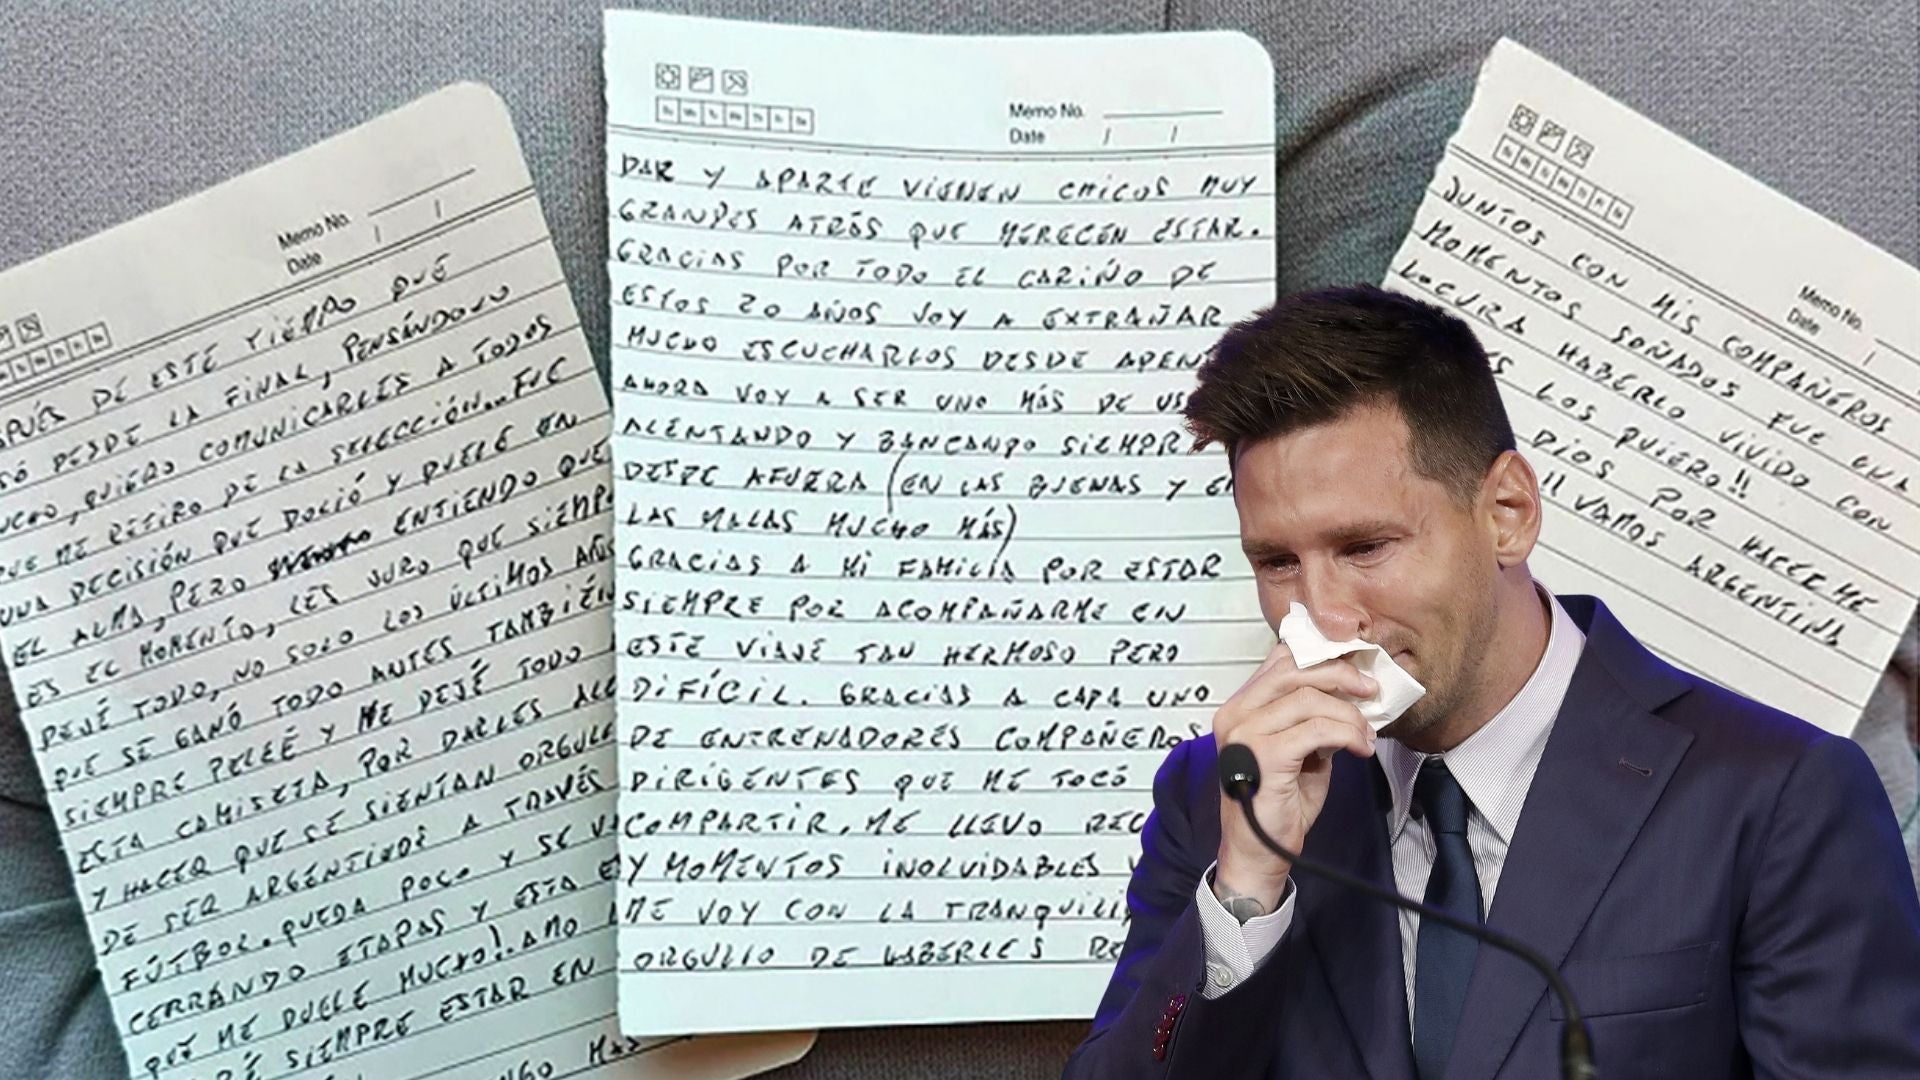 Memo No.
Date / /
SPUÉS DE ESTE TIEMPO QUE
DESDE LA FINAL, PENSÁNDOLO
MUCHO, QUIERO COMUNICARLES A TODOS
QUE ME RETIRO DE LA SELECCIÓN... FUE
UNA DECISIÓN QUE DOLIÓ Y DUELE EN
EL ALMA, PERO ENTIENDO QUE
ES EL MOMENTO, LES JURO QUE SIEMPRE
DEJÉ TODO, NO SOLO LOS ÚLTIMOS AÑOS
QUE SE GANÓ TODO ANTES TAMBIÉN
SIEMPRE PELEÉ Y ME DEJÉ TODO
ESTA CAMISETA, POR DARLES ALE
Y HACER QUE SE SIENTAN ORGULL
DE SER ARGENTINOS A TRAVÉS
FÚTBOL. QUEDA POCO Y SE VA
CERRANDO ETAPAS Y ESTA ES
QUE ME DUELE MUCHO! AMO
RÉ SIEMPRE ESTAR EN
NGO MAS
Memo No.
Date / /
DAR Y APARTE VIENEN CHICOS MUY
GRANDES ATRÁS QUE MERECEN ESTAR.
GRACIAS POR TODO EL CARIÑO DE
ESTOS 20 AÑOS VOY A EXTRAÑAR
MUCHO ESCUCHARLOS DESDE ADENT
AHORA VOY A SER UNO MÁS DE US
ALENTANDO Y BANCANDO SIEMPR
DESDE AFUERA (EN LAS BUENAS Y EN
LAS MALAS MUCHO MÁS)
GRACIAS A MI FAMILIA POR ESTAR
SIEMPRE POR ACOMPAÑARME EN
ESTE VIAJE TAN HERMOSO PERO
DIFÍCIL. GRACIAS A CADA UNO
DE ENTRENADORES COMPAÑEROS
DIRIGENTES QUE ME TOCÓ
COMPARTIR, ME LLEVO REC
Y MOMENTOS INOLVIDABLES
ME VOY CON LA TRANQUILI
ORGULLO DE HABERLES RE
Memo No.
Date /
JUNTOS CON MIS COMPAÑEROS
MOMENTOS SOÑADOS FUE UNA
LOCURA HABERLO VIVIDO CON
S LOS QUIERO!!
DIOS POR HACERME
!! VAMOS ARGENTINA